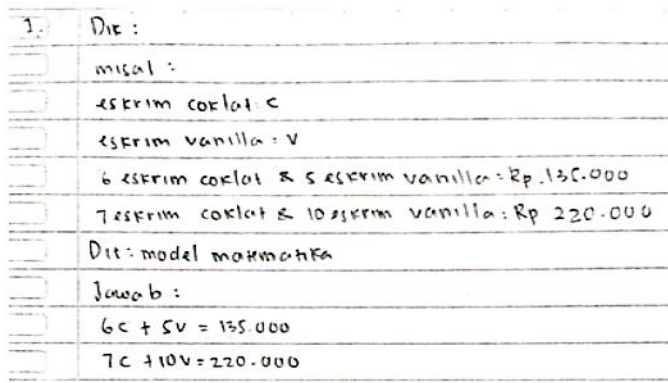 1. Dik :
misal :
eskrim coklat : c
eskrim vanilla : v
6 eskrim coklat & 5 eskrim vanilla : Rp. 135.000
7 eskrim coklat & 10 eskrim vanilla : Rp 220.000
Dit : model matematika
Jawab :
6c + 5v = 135.000
7c + 10v = 220.000